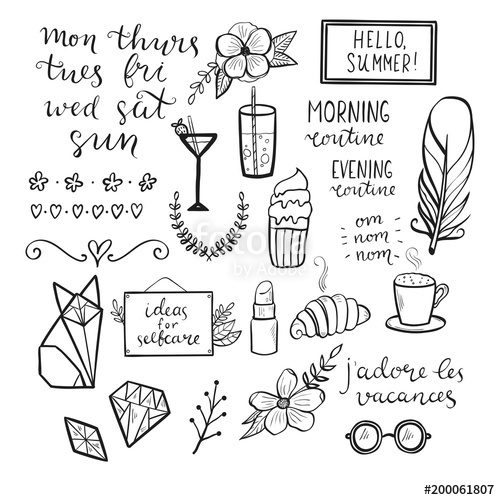 mon thurs
tues fri
wed sat
sun
HELLO,
SUMMER!
MORNING
routine
EVENING
routine
om
nom
nom
ideas
for
selfcare
j'adore les
vacances
fotolia
by Adobe
#200061807